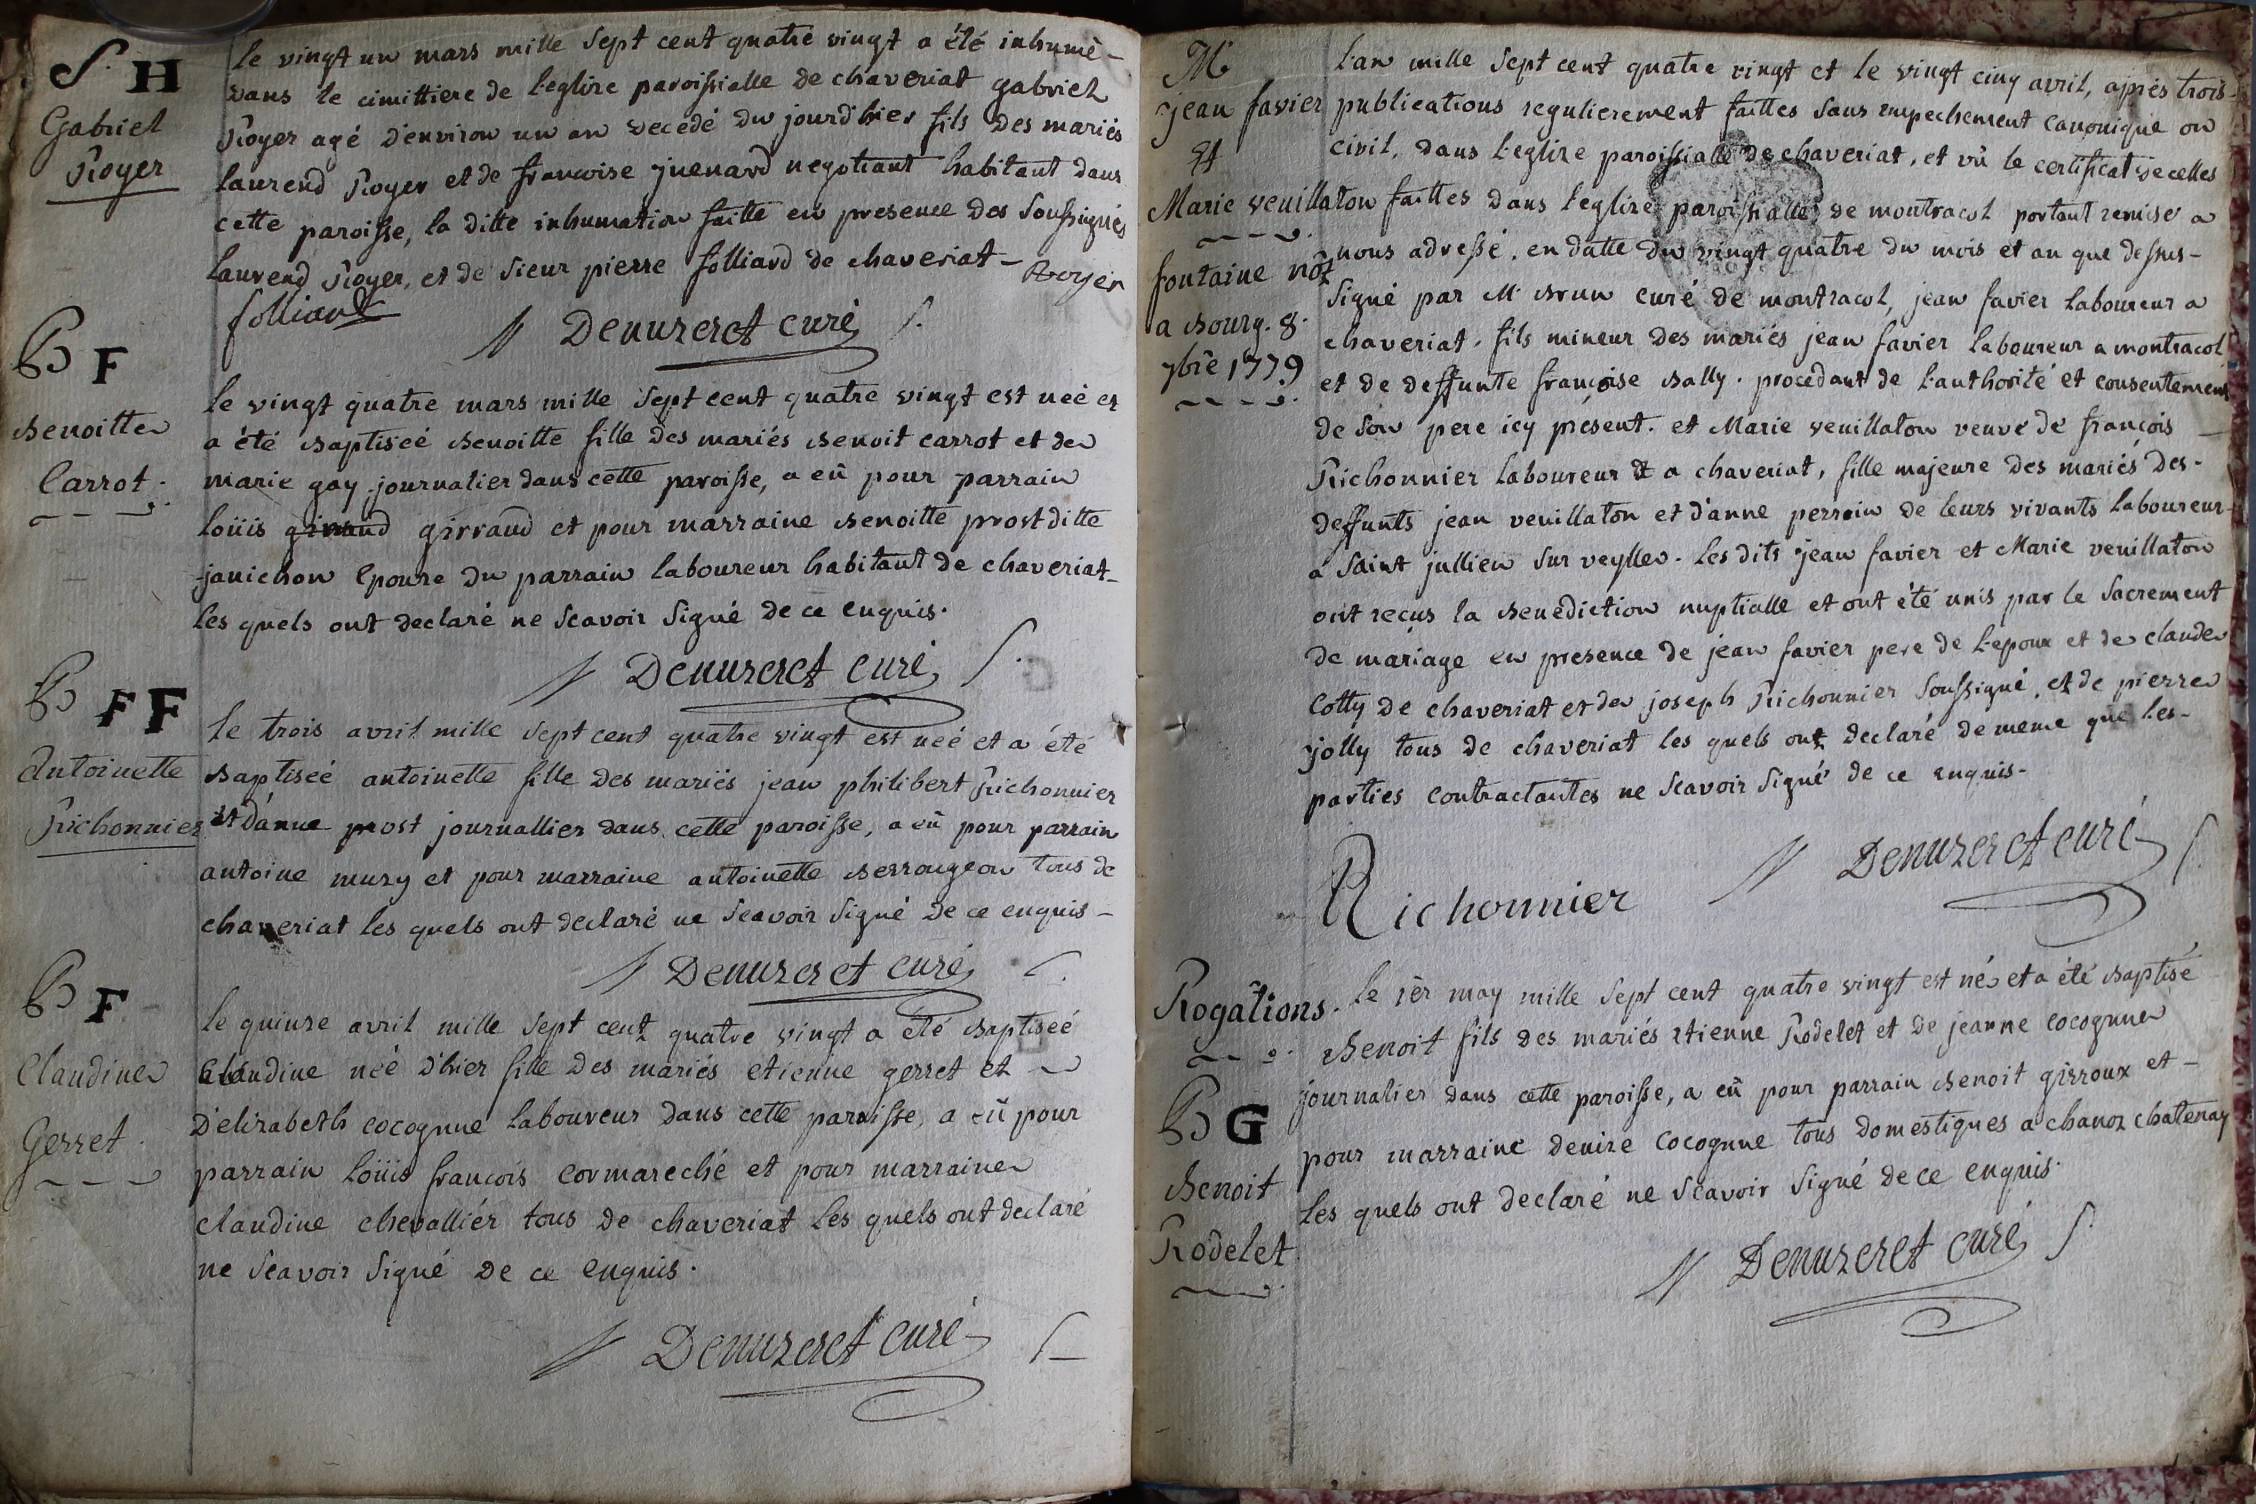 S. H
Gabriel
Royer
le vingt un mars mille sept cent quatre vingt a été inhumé -
dans le cimittiere de l'eglise paroissialle de chaveriat gabriel
Royer agé d'environ un an decédé du jourd'hier fils des mariés
laurend Royer et de francoise juenard negotiant habitant dans
cette paroisse, la ditte inhumation faitte en presence des soussignés
laurend Royer, et de sieur pierre folliard de chaveriat - Royer
folliard
Denuzeret curé
B F
Benoitte
Carrot.
le vingt quatre mars mille sept cent quatre vingt est neé et
a été Baptiseé Benoitte fille des mariés Benoit carrot et de
marie gay journalier dans cette paroisse, a eû pour parrain
loüis giraud girraud et pour marraine Benoitte prost ditte
janichon epouse du parrain laboureur habitant de chaveriat -
les quels ont declaré ne scavoir signé de ce enquis.
Denuzeret curé
B F F
Antoinette
Richonnier
le trois avril mille sept cent quatre vingt est neé et a été
Baptiseé antoinette fille des mariés jean philibert Richonnier
et d'anne prost journallier dans cette paroisse, a eû pour parrain
antoine mury et pour marraine antoinette Berrougeon tous de
chaveriat les quels ont declaré ne scavoir signé de ce enquis -
Denuzeret curé
B F
Claudine
Gerret.
le quinze avril mille sept cent quatre vingt a été Baptiseé
claudine neé d'hier fille des mariés etienne gerret et
d'elizabeth cocognne laboureur dans cette paroisse, a eû pour
parrain loüis francois cormareché et pour marraine
claudine chevalliér tous de chaveriat les quels ont declaré
ne scavoir signé de ce enquis.
Denuzeret curé
M
jean favier
et
Marie veuillaton
fontaine not
a Bourg. 8.
7bre 1779
l'an mille sept cent quatre vingt et le vingt cinq avril, après trois -
publications regulierement faittes sans empechement canonique ou
civil, dans l'eglise paroissialle de chaveriat, et vû le certificat de celles
faittes dans l'eglise paroissialle de montracol portant remise a
nous adressé, en datte du vingt quatre du mois et an que dessus -
signé par M. Brun curé de montracol, jean favier laboureur a
chaveriat. fils mineur des mariés jean favier laboureur a montracol
et de deffunte françoise Bally. procedant de l'authorité et consentement
de son pere icy présent. et Marie veuillaton veuve de françois -
Richonnier laboureur a chaveriat, fille majeure des mariés des -
deffunts jean veuillaton et d'anne perroin de leurs vivants laboureur -
a saint jullien sur veylle. les dits jean favier et Marie veuillaton
ont reçus la Benediction nuptialle et ont été unis par le sacrement
de mariage en presence de jean favier pere de l'epoux et de claude
Cotty de chaveriat et de joseph Richonnier soussigné, et de pierre
jolly tous de chaveriat les quels ont declaré de meme que les -
parties contractantes ne scavoir signé de ce enquis -
Richonnier Denuzeret curé
Rogations.
B G
Benoit
Rodelet.
le 1er may mille sept cent quatre vingt est né et a été Baptisé
Benoit fils des mariés etienne Rodelet et de jeanne cocognne
journalier dans cette paroisse, a eû pour parrain Benoit girroux et -
pour marraine denise cocognne tous domestiques a chanoz chatenay
les quels ont declaré ne scavoir signé de ce enquis.
Denuzeret curé